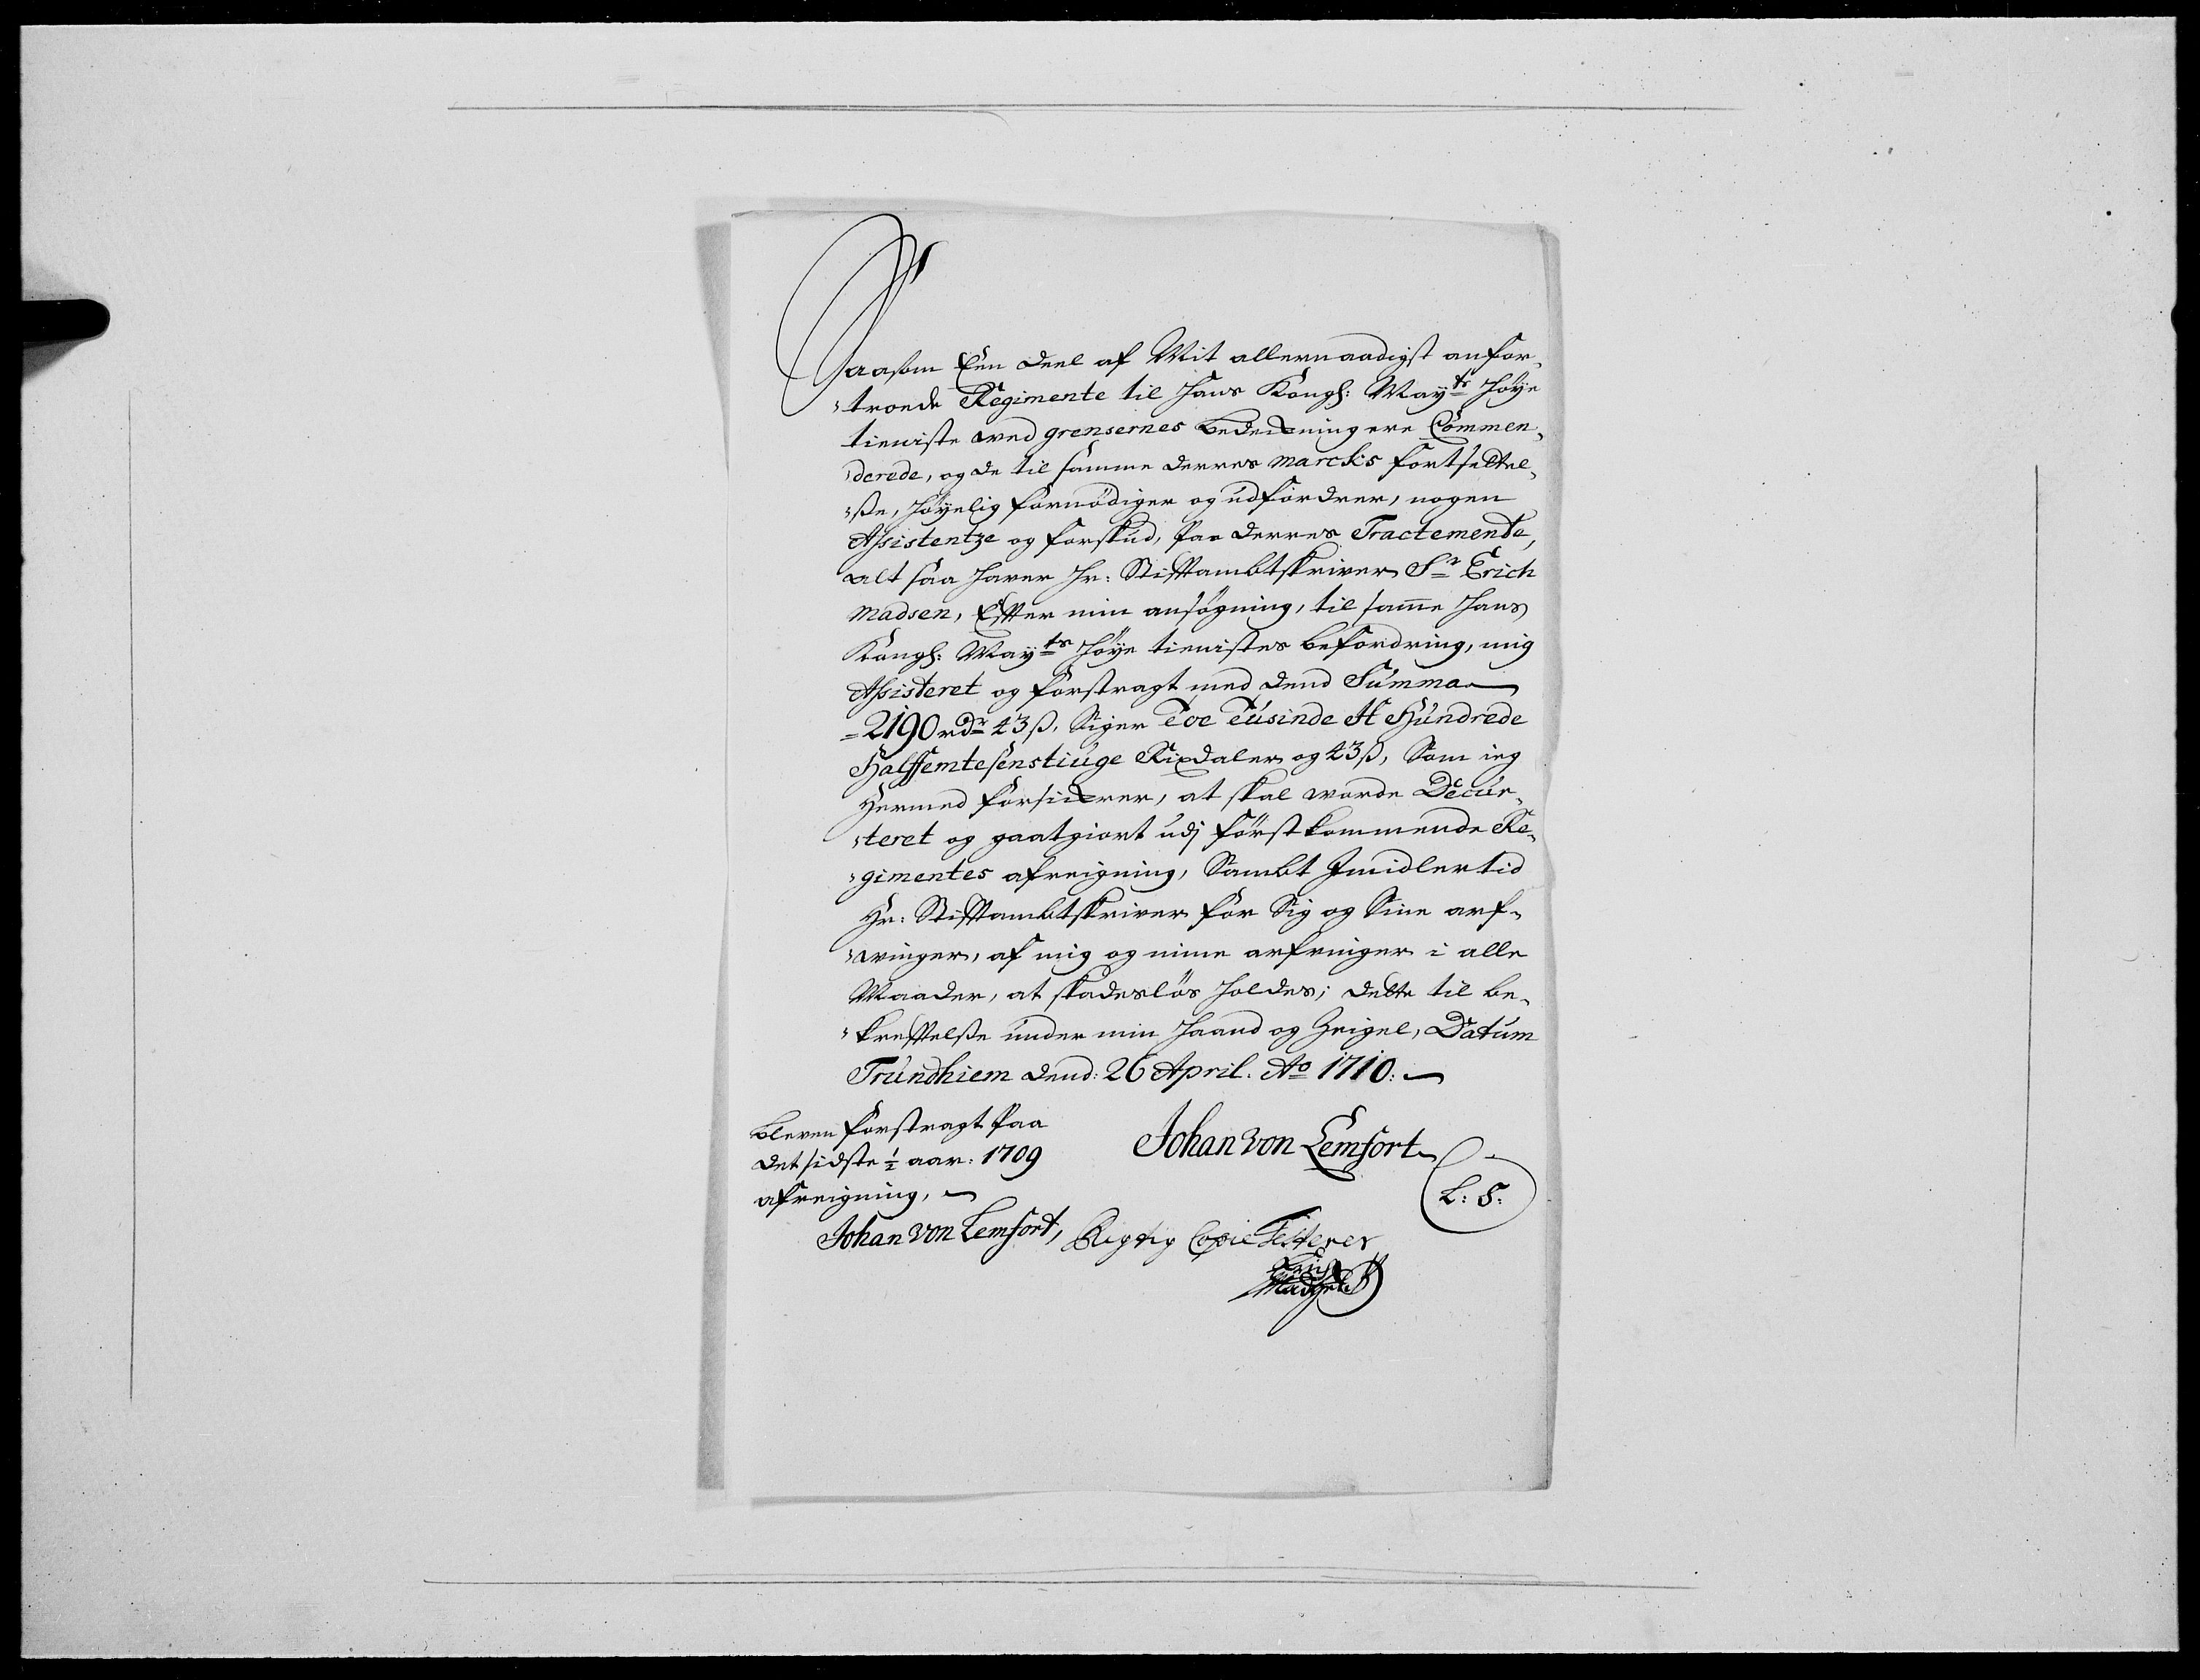 Saasom Een deel af Mit allernaadigst anfor¬
¬troede Regimente til Hans Kongl: Mayts Høye
tieniste ved grensernes bedeckning ere Commen¬
¬derede, og de til samme derres marck's fortsettel¬
¬sse, høyelig fornødiger og udfordrer, nogen
Assistentze og forskud, paa derres Tractemente,
alt saa hafver Hr: Stifftambtskriver Sr Erich
Madsen, Effter min ansøgning, til samme Hans
Kongl: Mayts Høye tienistes befordring, mig
Assisteret og forstragt med dend Summa
=2190 rdr 43 ß, Siger Toe Tusinde Et Hundrede
Halffemtesenstiuge Rixdaler og 43 ß, Som ieg
Hermed forsickrer, at skal worde Decur¬
¬teret og gaatgiort udj førstkommende Re¬
¬gimentes afreigning, Sambt Imidlertid
Hr: Stifftambtskriver for Sig og Sine arf¬
¬vinger, af mig og mine arfvinger i alle
Maader, at skadesløs holdes; dette til be¬
¬krefftelsse under min Haand og Zeigel, Datum
Trundhiem dend: 26 April. Ao 1710:
Johan von Lemfort
L: S:
bleven forstragt paa
det sidste ½ aar: 1709
afreigning,
Johan von Lemfort,
Rigtig Copie Testerer
Erich
Madsen